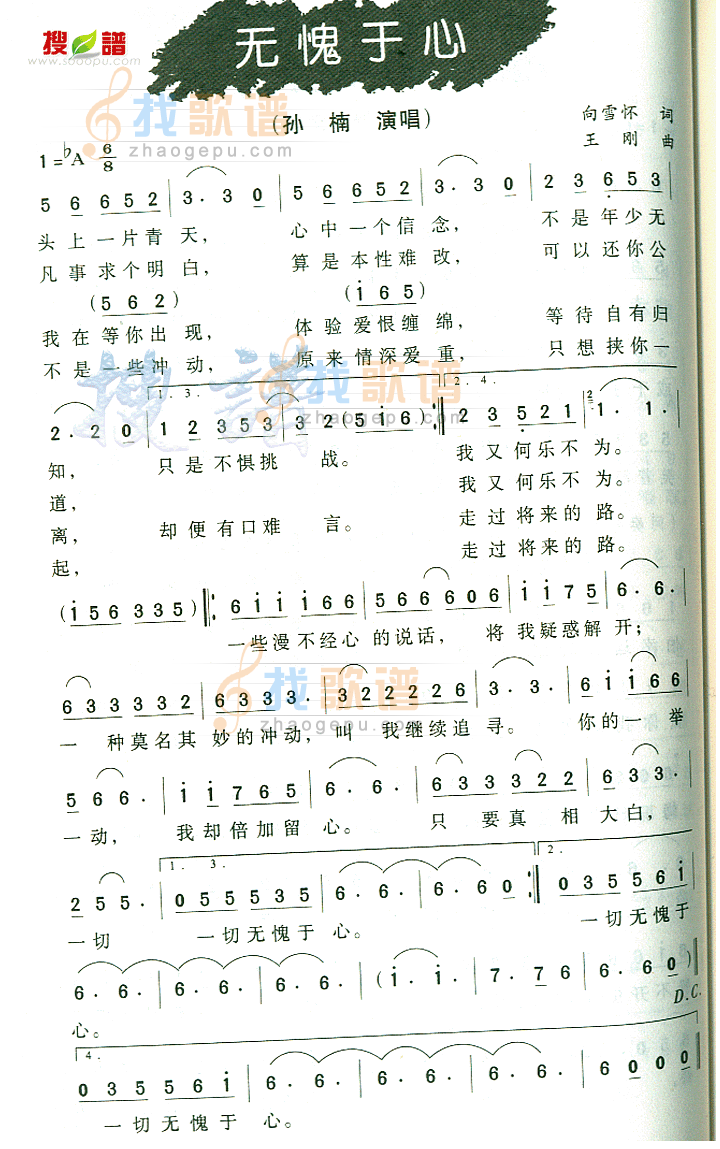 搜譜
www.sooopu.com
无愧于心
找歌谱
zhaogepu.com
(孙 楠 演唱)
向雪怀 词
王 刚 曲
1=♭A 6/8
5 6 6 5 2 | 3 . 3 0 | 5 6 6 5 2 | 3 . 3 0 | 2 3 6 5 3
头上一片青天, 心中一个信念, 不是年少无
凡事求个明白, 算是本性难改, 可以还你公
(5 6 2) (i 6 5)
我在等你出现, 体验爱恨缠绵, 等待自有归
不是一些冲动, 原来情深爱重, 只想挟你一
搜譜
找歌谱
zhaogepu.com
1. 3. 2. 4.
2 . 2 0 | 1 2 3 5 3 | 3 2 (5 i 6) :‖ 2 3 5 2 1 | 1 . 1 .
知, 只是不惧挑战。 我又何乐不为。
道, 我又何乐不为。
离, 却便有口难言。 走过将来的路。
起, 走过将来的路。
找歌谱
zhaogepu.com
(i 5 6 3 3 5) ‖: 6 i i i 6 6 | 5 6 6 6 0 6 | i i 7 5 | 6 . 6 .
一些漫不经心的说话, 将我疑惑解开;
找歌谱
zhaogepu.com
6 3 3 3 3 2 | 6 3 3 3 . | 3 2 2 2 2 6 | 3 . 3 . | 6 i i 6 6
一种莫名其妙的冲动,叫我继续追寻。 你的一举
5 6 6 . | i i 7 6 5 | 6 . 6 . | 6 3 3 3 2 2 | 6 3 3 .
一动, 我却倍加留心。 只要真相大白,
1. 3. 2.
2 5 5 . | 0 5 5 5 3 5 | 6 . 6 . | 6 . 6 0 :‖ 0 3 5 5 6 i
一切 一切无愧于心。 一切无愧于
6 . 6 . | 6 . 6 . | 6 . 6 . | (i . i . | 7 . 7 6 | 6 . 6 0)
D.C.
心。
4.
0 3 5 5 6 i | 6 . 6 . | 6 . 6 . | 6 . 6 . | 6 0 0 0
一切无愧于心。